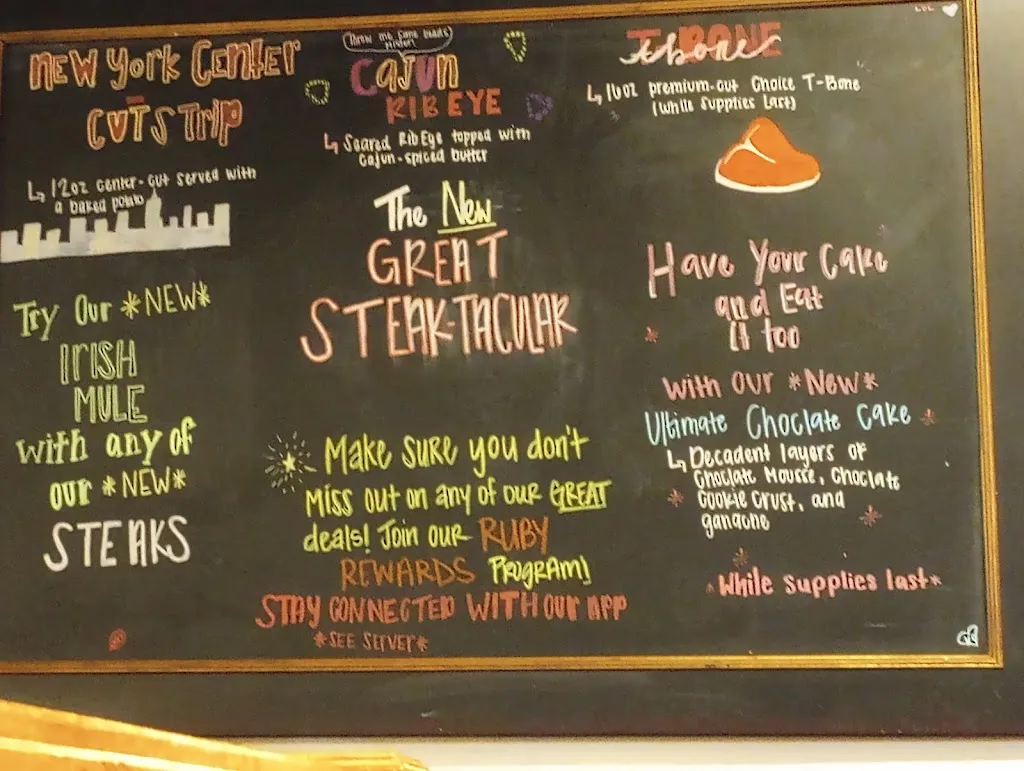 NEW York CENTER
CUTSTrip
↳ 12oz center-cut served with
a baked potato
Try Our *NEW*
IRISH
MULE
with any of
our *NEW*
STEAKS
Throw me some beads
mister!
Cajun
RIBEYE
↳ Seared RibEye topped with
Cajun-spiced butter
The New
GREAT
STEAK-TACULAR
Make sure you don't
miss out on any of our GREAT
deals! Join our RUBY
REWARDS PROGRAM!
STAY CONNECTED WITH our APP
*SEE SERVER*
T-BONE
T-bone
↳ 16oz premium-cut Choice T-Bone
(while supplies last)
Have Your Cake
and Eat
it too
with our *New*
Ultimate Choclate Cake
↳ Decadent layers of
Choclate Mousse, Choclate
Cookie Crust, and
ganache
*While supplies last*